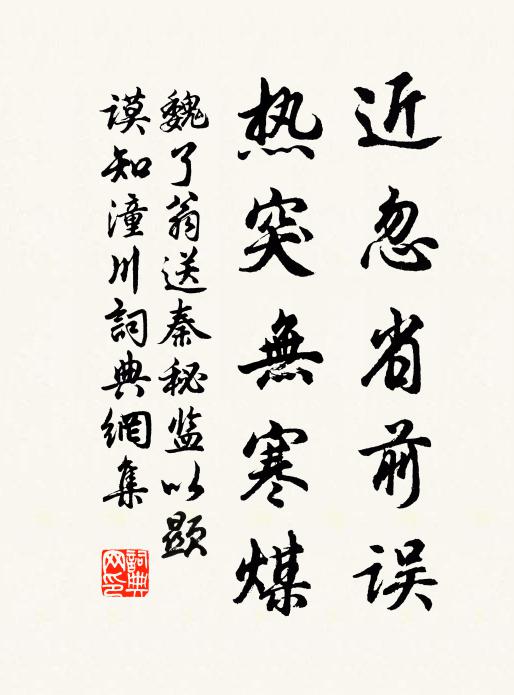 近忽省前误
热突無寒煤
魏了翁送秦秘监以顯
谟知潼川詞典網集
詞典网印